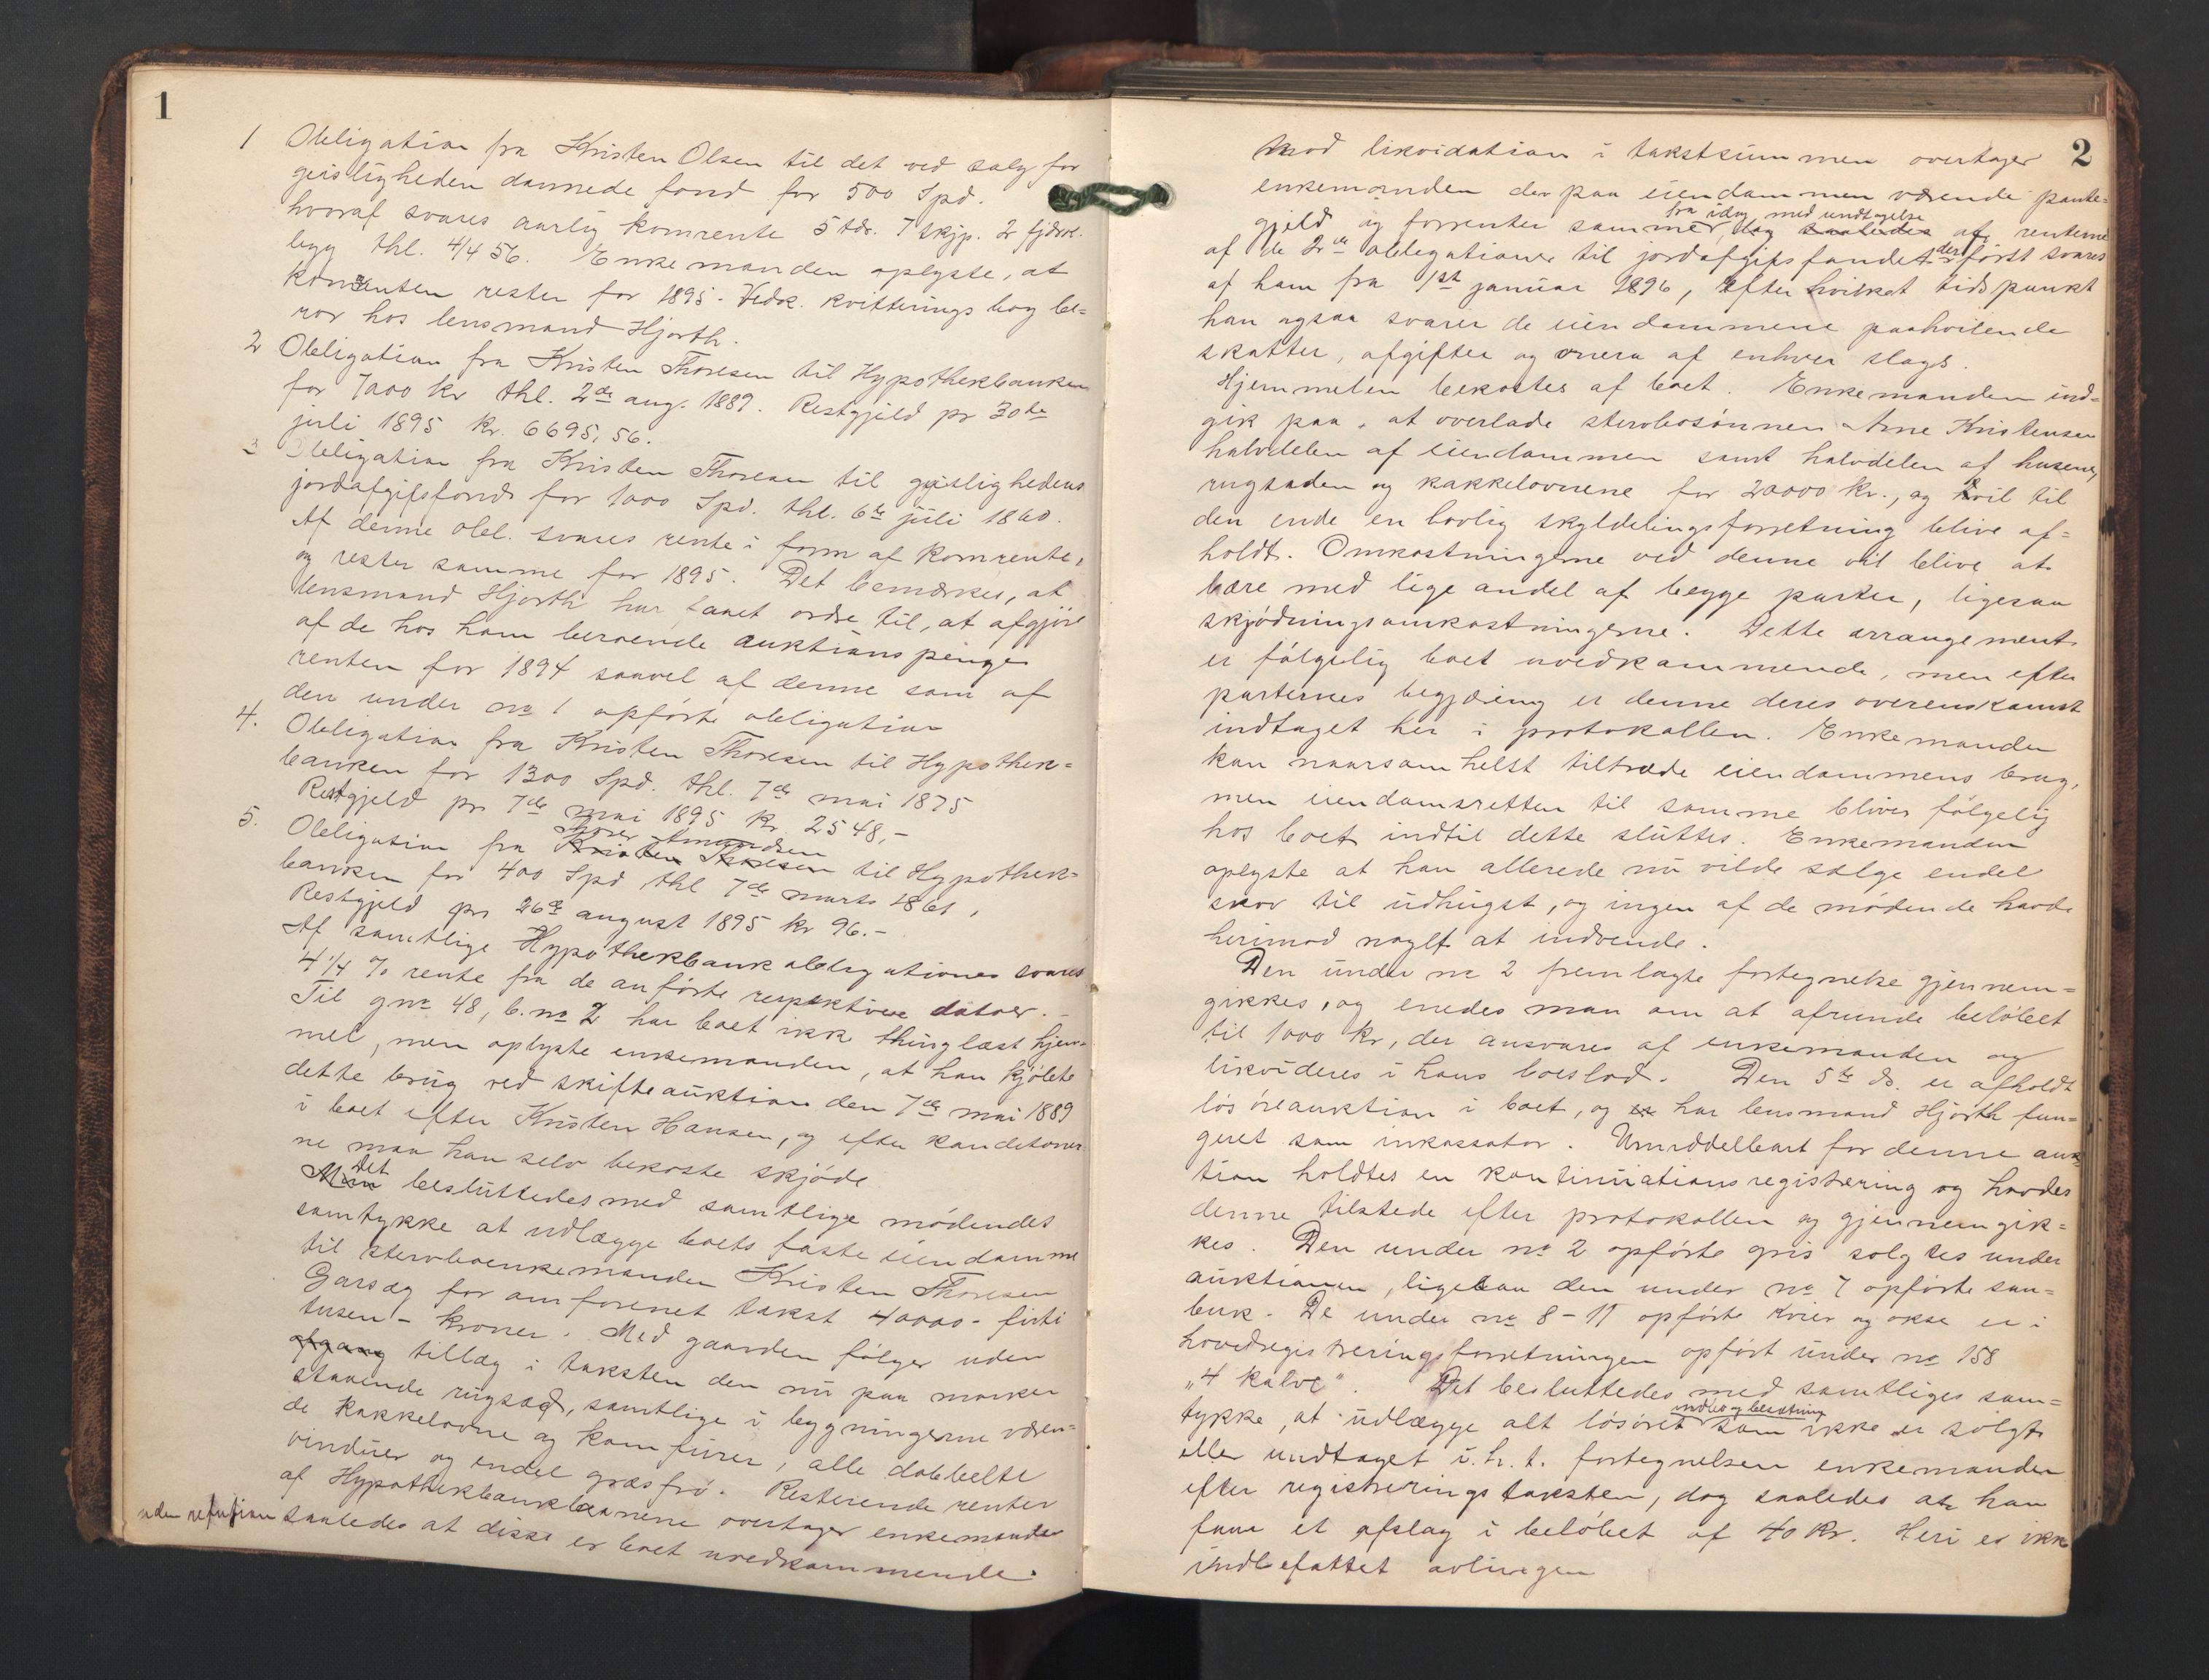 1
1 Obligation fra Kristen Olsen til det ved salg for
geistligheden dannede fond for 500 Spd.
hvoraf svares aarlig kornrente 5 tdr. 7 skjp. 2 fjdrk.
byg thl. 4/4 56. Enkemanden oplyste, at
kornrenten rester for 1895. Vedk. kvitteringsbog be=
ror hos lensmand Hjorth.
2 Obligation fra Kristen Thoresen til Hypothekbanken
for 7000 kr thl. 2de aug. 1889. Restgjeld pr 30te
juli 1895 kr. 6695,56.
3 Obligation fra Kristen Thoresen til geistlighedens
jordafgifsfond for 1000 Spd. thl. 6te juli 1860.
Af denne obl. svares rente i form af kornrente,
og rester samme for 1895. Det bemærkes, at
lensmand Hjorth har faaet ordre til, at afgjøre
af de hos ham beroende auktionspenge
renten for 1894 saavel af denne som af
den under no 1 opførte obligation
4. Obligation fra Kristen Thoresen til Hypothek=
banken for 1300 Spd. thl. 7de mai 1875
Restgjeld pr 7de mai 1895 kr. 2548,-
Thorer Amundsen
5. Obligation fra Kristen Thoresen til Hypothek=
banken for 400 Spd thl 7de marts 1861,
Restgjeld pr 26de august 1895 kr 96.-
Af samtlige Hypothekbankobligationer svares
4 1/4 % rente fra de anførte respektive datoer.-
Til gno 48, b.no 2 har boet ikke thinglæst hjem=
mel, men oplyste enkemanden, at han kjøbte
dette brug ved skifteauktion den 7de mai 1889
i boet efter Kristen Hansen, og efter konditioner=
ne maa han selv bekoste skjøde
Det
Man besluttedes med samtlige mødendes
samtykke at udlægge boets faste eiendomme
til stervboenkemanden Kristen Thoresen
Garsæg for omforenet takst 40000- firti
tusen - kroner. Med gaarden følger uden
afgang tillæg i taksten den nu paa marken
staaende rugsæd, samtlige i bygningerne væren=
de kakkelovne og komfurer, alle dobbelte
vinduer og endel græsfrø. Resterende renter
af Hypothekbanklaanene overtager enkemanden
uden refusion saaledes at disse er boet uvedkommende.
2
Mod likvidation i takstsummen overtager
enkemanden der paa eiendommen værende pante=
fra idag med undtagelse
gjeld og forrenter samme, dog saaledes at renterne
af de 2de obligationer til jordafgifsfondet der først svares
af ham fra 1ste januar 1896, efter hvilket tidspunkt
han ogsaa svarer de eiendommene paahvilende
skatter, afgifter og onera af enhver slags.
Hjemmelen bekostes af boet. Enkemanden ind=
gik paa, at overlade stervbosønnen Arne Kristensen
halvdelen af eiendommen samt halvdelen af husene,
rugsæden og kakkelovnene for 20000 kr., og vil til
den ende en lovlig skylddelingsforretning blive af=
holdt. Omkostningerne ved denne vil blive at
bære med lige andel af begge parter, ligesaa
skjødningsomkostningerne. Dette arrangement
er følgelig boet uvedkommende, men efter
parternes begjæring er denne deres overenskomst
indtaget her i protokollen. Enkemanden
kan naarsomhelst tiltræde eiendommens brug,
men eiendomsretten til samme bliver følgelig
hos boet indtil dette sluttes. Enkemanden
oplyste at han allerede nu vilde sælge endel
skov til udhugst, og ingen af de mødende havde
herimod noget at indvende.
Den under no 2 fremlagte fortegnelse gjennem=
gikkes, og enedes man om at afrunde beløbet
til 1000 kr, der ansvares af enkemanden og
likvideres i hans boeslod. Den 5te ds. er afholdt
løsøreauktion i boet, og er har lensmand Hjorth fun=
geret som inkassator. Umiddelbart før denne auk=
tion holdtes en kontinuationsregistrering og havdes
denne tilstede efter protokollen og gjennemgik=
kes. Den under no 2 opførte gris solgtes under
auktionen, ligesaa den under no 7 opførte sau=
buk. De under no 8-11 opførte kvier og okse er i
hovedregistreringsforretningen opført under no 158
„4 kalve". Det besluttedes med samtliges sam=
indbo og besætning
tykke, at udlægge alt løsøret som ikke er solgt
eller undtaget i.h.t. fortegnelsen enkemanden
efter registreringstaksten, dog saaledes at han
faar et afslag i beløbet af 40 kr. Heri er ikke
indbefattet avlingen